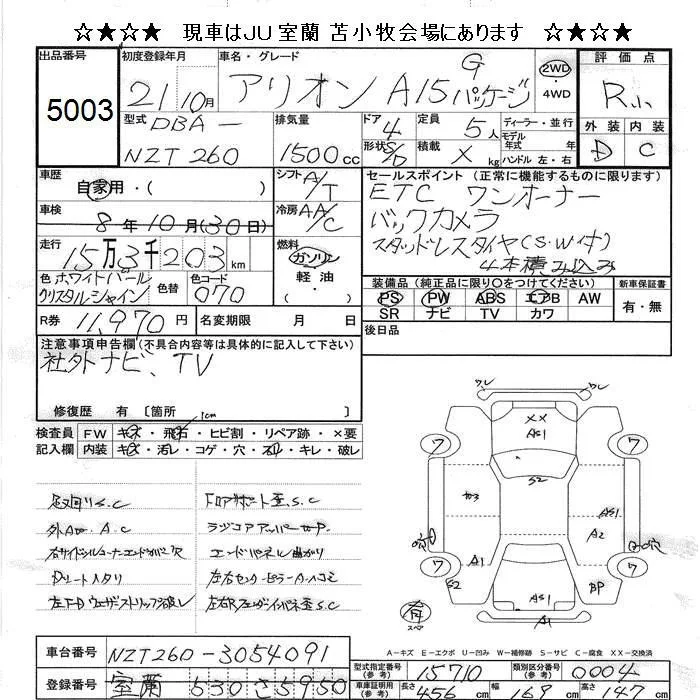 ☆★☆★ 現車はJU室蘭 苫小牧会場にあります ☆★☆★
出品番号
5003
初度登録年月
21 10月
車名・グレード
アリオン A15 Gパッケージ
2WD
・4WD
評価点
R
外装 内装
D C
型式
DBA-
NZT260
排気量
1500cc
ドア
4
形状
S/D
定員
5人
積載
× kg
ディーラー・並行
モデル
年式 年
ハンドル 左・右
車歴
自家用・( )
シフト
A/T
車検
8年10月(30日)
冷房
AA/C
走行
15万3千203km
燃料
ガソリン
軽油
・( )
色
ホワイトパール
クリスタルシャイン
色替
色コード
070
R券 11,970円
名変期限 月 日
セールスポイント(正常に機能するものに限ります)
ETC ワンオーナー
バックカメラ
スタッドレスタイヤ(S.W付)
4本積み込み
装備品(純正品に限り○をつけてください)
PS PW ABS エアB AW
SR ナビ TV カワ
新車保証書
有・無
後日品
注意事項申告欄(不具合内容等は具体的に記入して下さい)
社外ナビ、TV
修復歴 有〔箇所
1cm
検査員 FW キズ・飛石・ヒビ割・リペア跡・×要
記入欄 内装 キズ・汚レ・コゲ・穴・スレ・キレ・破レ
足回りS.C
外A A.C
右サイドシルコーナーエンドカバー欠
Dシートヘタリ
左FDウェザーストリップ破レ
フロアサポート歪、S.C
ラジコアアッパーサポ.P.
エンドパネル曲がり
左右センターピラーA.ハコミ
左右Rフェンダーインパネ歪S.C
ワレ
ワレ
××
AS1
S2
7
7
カ3
AS1
A2
A1
A1
7
7
S2
BP
AS1
A1
有
スペア
A-キズ E-エクボ U-凹み W-補修跡 S-サビ C-腐食 XX-交換済
車台番号 NZT260-3054091
登録番号 室蘭 530 さ 5950
型式指定番号
(参考)
15710
類別区分番号
(参考)
0004
車庫証明用
(参考)
長さ 456 cm
幅 169 cm
高さ 147 cm